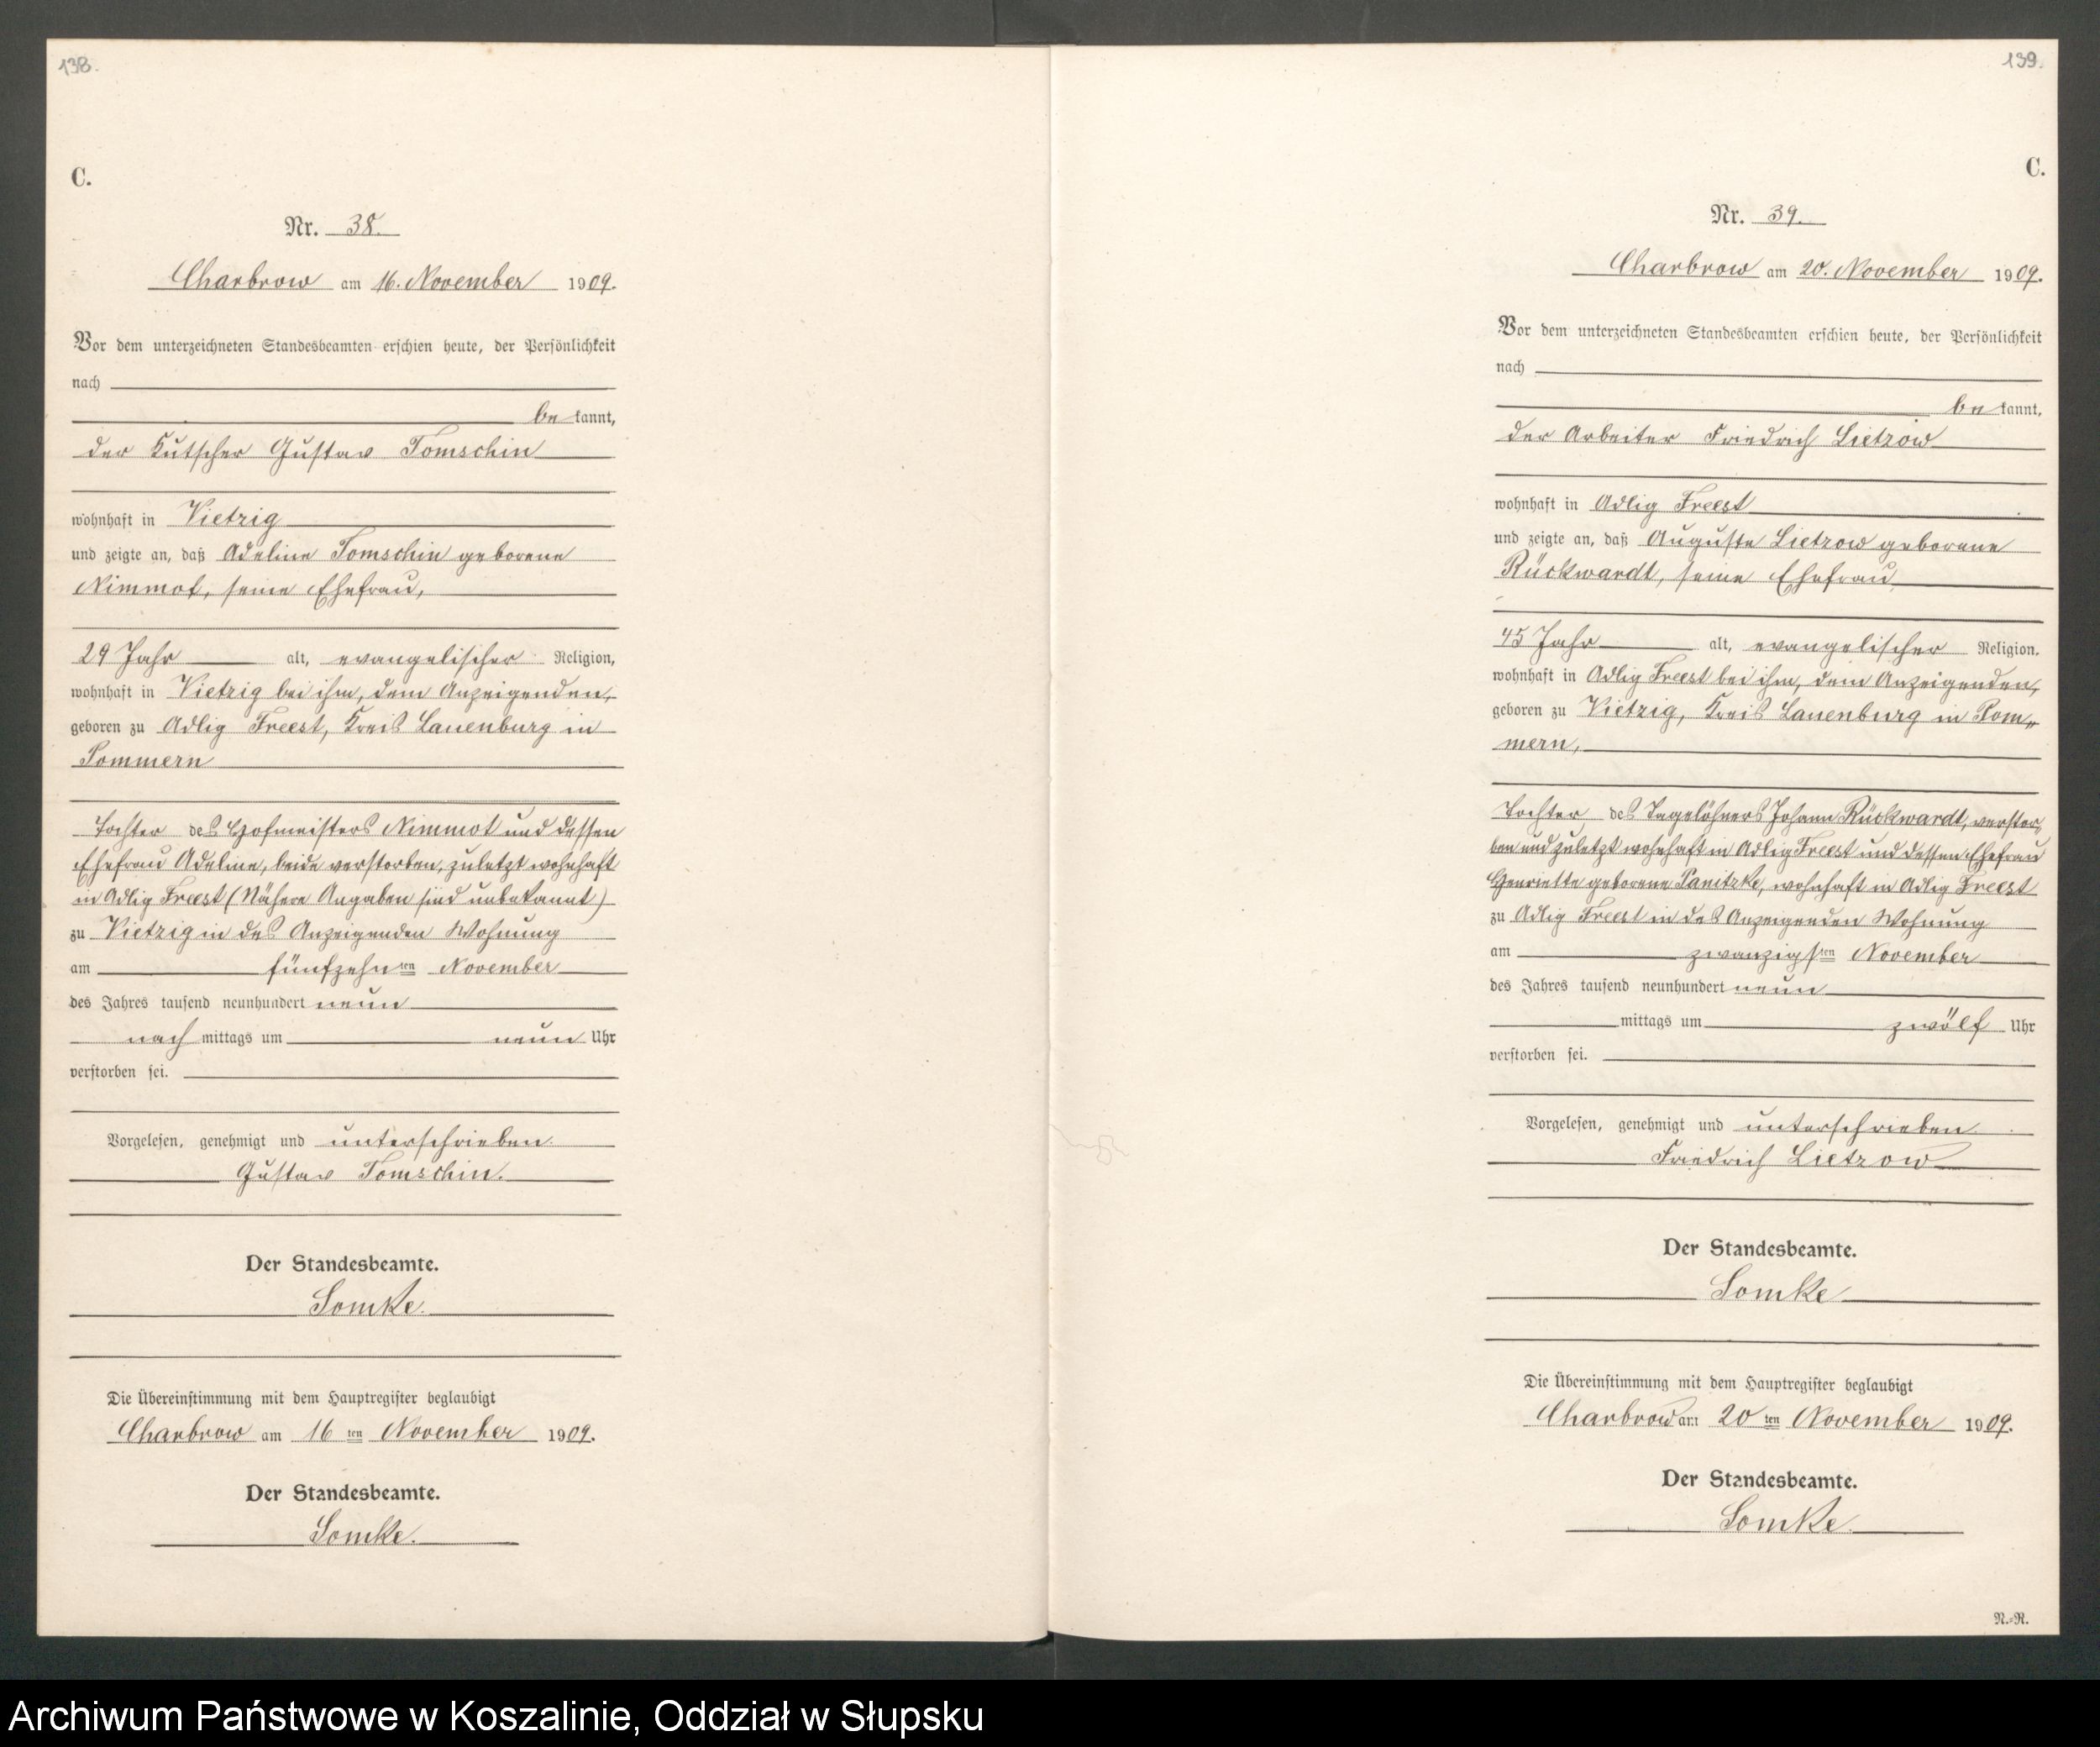 138.
C.
Nr. 38.
Charbrow am 16. November 1909.
Vor dem unterzeichneten Standesbeamten erschien heute, der Persönlichkeit
nach
be kannt,
der Kutscher Gustav Tomschin
wohnhaft in Vietzig
und zeigte an, daß Adeline Tomschin geborene
Nimmot, seine Ehefrau,
29 Jahr alt, evangelischer Religion,
wohnhaft in Vietzig bei ihm, dem Anzeigenden,
geboren zu Adlig Freest, Kreis Lauenburg in
Pommern
Tochter des Hofmeisters Nimmot und dessen
Ehefrau Adeline, beide verstorben, zuletzt wohnhaft
in Adlig Freest (Nähere Angaben sind unbekannt)
zu Vietzig in des Anzeigenden Wohnung
am fünfzehn ten November
des Jahres tausend neunhundert neun
nach mittags um neun Uhr
verstorben sei.
Vorgelesen, genehmigt und unterschrieben.
Gustav Tomschin.
Der Standesbeamte.
Somke.
Die Übereinstimmung mit dem Hauptregister beglaubigt
Charbrow am 16 ten November 1909.
Der Standesbeamte.
Somke.
139.
C.
Nr. 39.
Charbrow am 20. November 1909.
Vor dem unterzeichneten Standesbeamten erschien heute, der Persönlichkeit
nach
be kannt,
der Arbeiter Friedrich Lietzow
wohnhaft in Adlig Freest
und zeigte an, daß Auguste Lietzow geborene
Rückwardt, seine Ehefrau
45 Jahr alt, evangelischer Religion,
wohnhaft in Adlig Freest bei ihm, dem Anzeigenden,
geboren zu Vietzig, Kreis Lauenburg in Pom„
mern,
Tochter des Tagelöhners Johann Rückwardt, verstor„
ben und zuletzt wohnhaft in Adlig Freest und dessen Ehefrau
Henriette geborene Panitzke, wohnhaft in Adlig Freest
zu Adlig Freest in des Anzeigenden Wohnung
am zwanzigs ten November
des Jahres tausend neunhundert neun
mittags um zwölf Uhr
verstorben sei.
Vorgelesen, genehmigt und unterschrieben.
Friedrich Lietzow
Der Standesbeamte.
Somke
Die Übereinstimmung mit dem Hauptregister beglaubigt
Charbrow am 20 ten November 1909.
Der Standesbeamte.
Somke.
N.-R.
Archiwum Państwowe w Koszalinie, Oddział w Słupsku